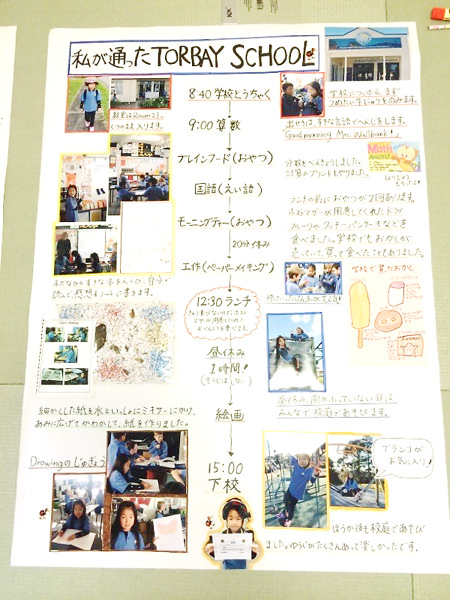 私が通ったTORBAY SCHOOL
8:40 学校とうちゃく
教室はRoom21。
くつのまま入ります。
学校についたら、まず
つめたい牛にゅうをのみます。
9:00 算数
出せきは、すきな言語でへんじをします。
Good morning Mrs. Wallbank!
ブレインフード(おやつ)
分数をべんきょうしました。
計算のプリントもやりました。
Math
Award
国語(えい語)
ランチの前におやつが2回あります。
ホストマザーが用意してくれたドライ
フルーツや クッキー、パンケーキなどを
食べました。学校でもおかしが
売っていて、買って食べたこともありました。
モーニングティー(おやつ)
20分休み
工作(ペーパーメイキング)
学校で買ったおかし
12:30 ランチ
昼休み
1時間!
昼休み、雨のふっていない日は、
みんなで校庭であそびます。
絵画
細かくした紙を水といっしょにミキサーにかけ、
あみに広げてかわかして、紙を作りました。
Drawingのじゅぎょう
ブランコが
お気に入り!
15:00
下校
ほうか後も校庭であそび
ました。ゆうぐがたくさんあって楽しかったです。